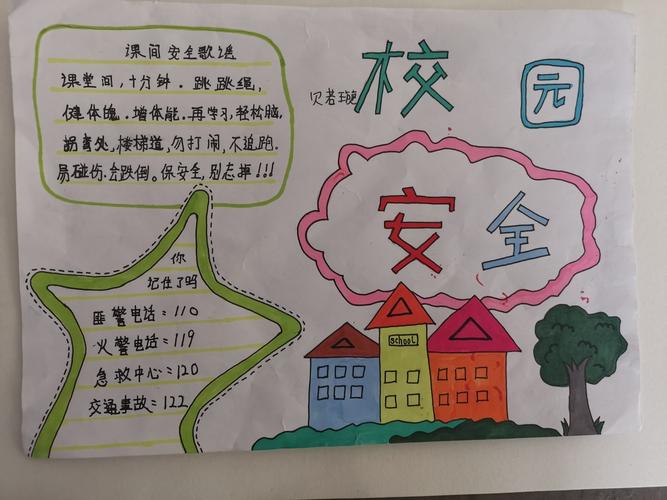 课间安全歌谣
课堂间,十分钟.跳跳绳,
健体魄.增体能.再学习,轻松脑.
拐弯处,楼梯道,勿打闹,不追跑.
易碰伤.会跌倒。保安全,别忘掉!!!
校
园
安
全
你
记住了吗
匪警电话:110
火警电话:119
急救中心:120
交通事故:122
school